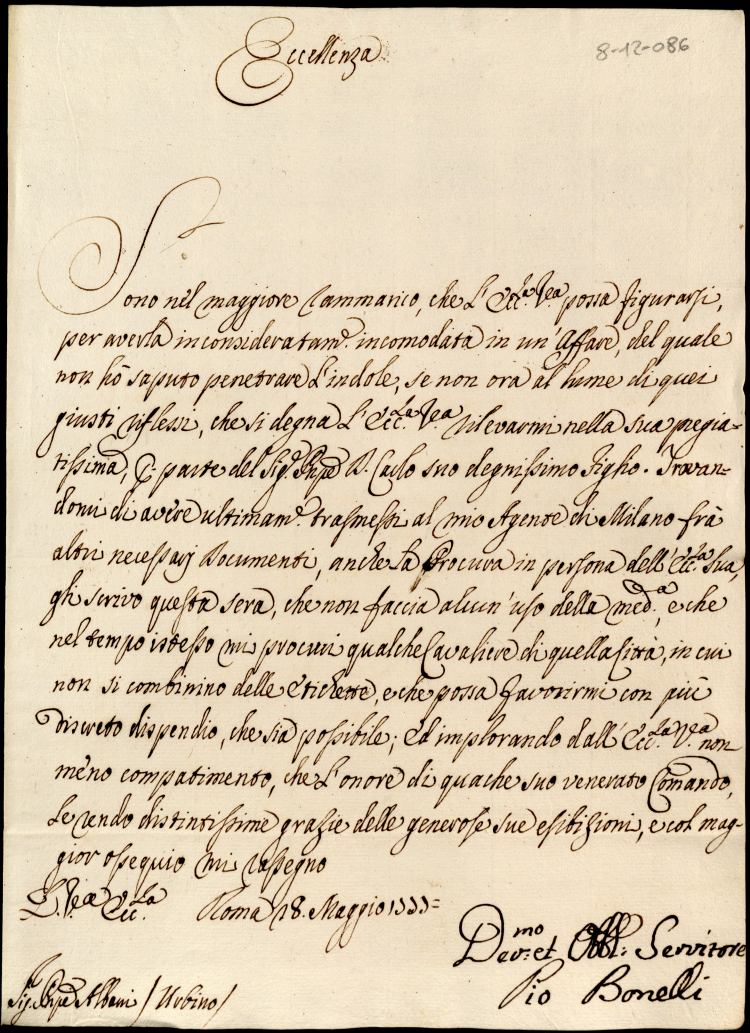 Eccellenza
8-12-086
Sono nel maggiore rammarico, che L'Ecc.La V.ra possa figurarsi,
per averla inconsideratam.e incomodata in un' Affare, del quale
non hò saputo penetrare l'indole, se non ora al lume di quei
giusti riflessi, che si degna L'Ecc.La V.ra rilevarmi nella sua pregia=
tissima, P. parte del Sig.r Pnpe D. Carlo suo degnissimo Figlio. Trovan=
domi di avere ultimam.e trasmessi al mio Agente di Milano frà
altri necessarj Documenti, anche la Procura in persona dell'Ecc.La Sua,
gli scrivo questa sera, che non faccia alcun' uso della med.a, e che
nel tempo istesso mi procuri qualche Cavaliere di quella Città, in cui
non si combinino delle etichette, e che possa favorirmi con più
discreto dispendio, che sia possibile; Ed implorando dall'Ecc.La V.ra non
meno compatimento, che L'onore di quache suo venerato Comando,
Le rendo distintissime grazie delle generose sue esibizioni, e col mag=
gior ossequio mi rassegno
D. V.ra Ecc.La Roma 18. Maggio 1777=
Dev.mo et Obbl: Servitore
Pio Bonelli
Sig.r Pnpe Albani / Urbino /